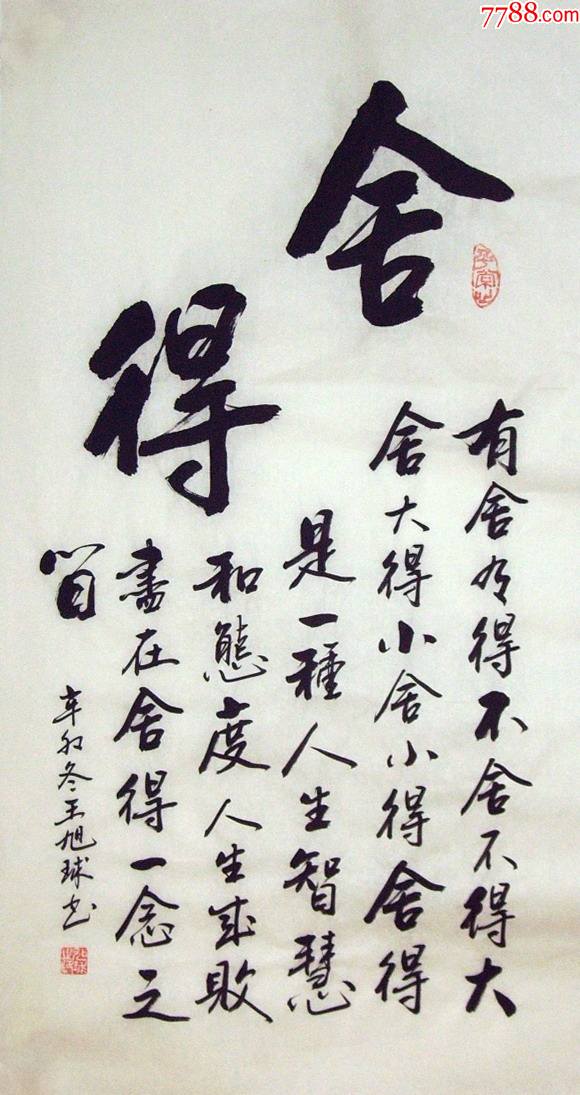 7788.com
舍
得
平常心
有舍有得不舍不得大
舍大得小舍小得舍得
是一種人生智慧
和態度人生成敗
盡在舍得一念之
間
辛卯冬王旭球书